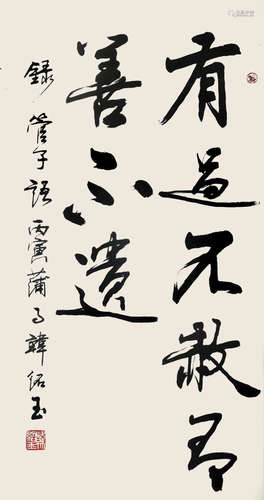 有過不赦有
善不遺
錄管子語丙寅蒲月韓紹玉